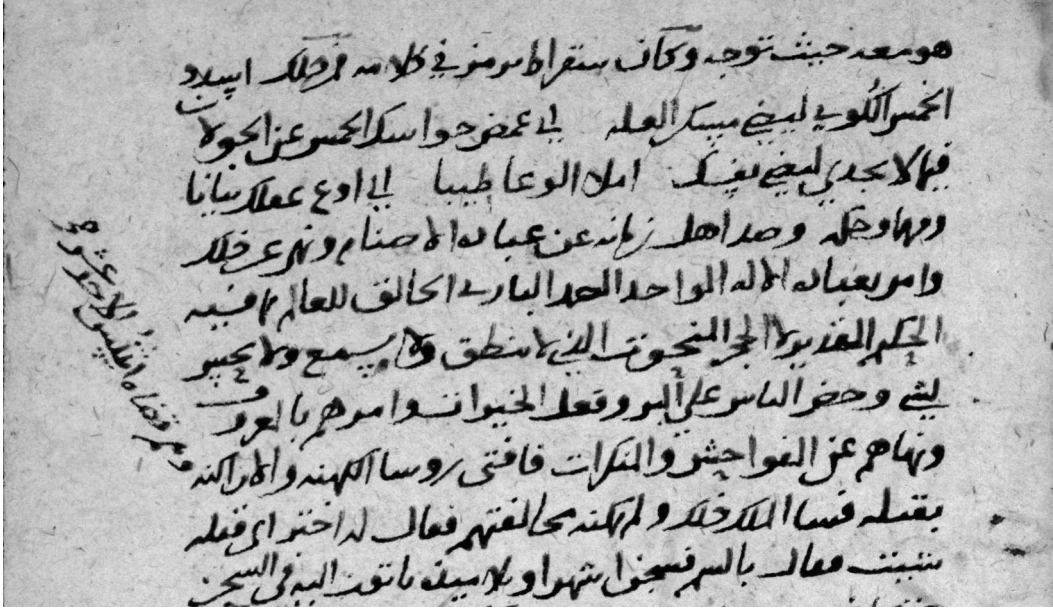 هو معه حيث توجه وكان سقراط يرمز في كلامه فمن ذلك
الخمس الكوي ليضي مسكن العله اي غمض حواسك الخمس عن الجولان
فيما لا يجدي ليضي نفسك املا الوعا طيبا اي اوع عقلك بيانا
وفهما وحكمه وصد اهل زمانه عن عباده الاصنام ونهى عن ذلك
وامر بعباده الاله الواحد الصمد الباري الخالق للعالم بما فيه
الحكيم القدير لا الحجر المنحوت الذي لا ينطق ولا يسمع ولا يحس
لشي وحض الناس علي البر وفعل الخيرات وامرهم بالمعروف
ونهاهم عن الفواحش والمنكرات فافتى روسا الكهنه والاراكنه
بقتله فسا الملك ذلك ولم يمكنه مخالفتهم فقال له اختر اي قتله
شيت فقال بالسم فسجن شهرا وتلاميذه ياتون اليه في السجن
وهم قضاه اثينس الاحد عشر